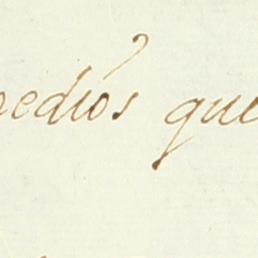 medios que